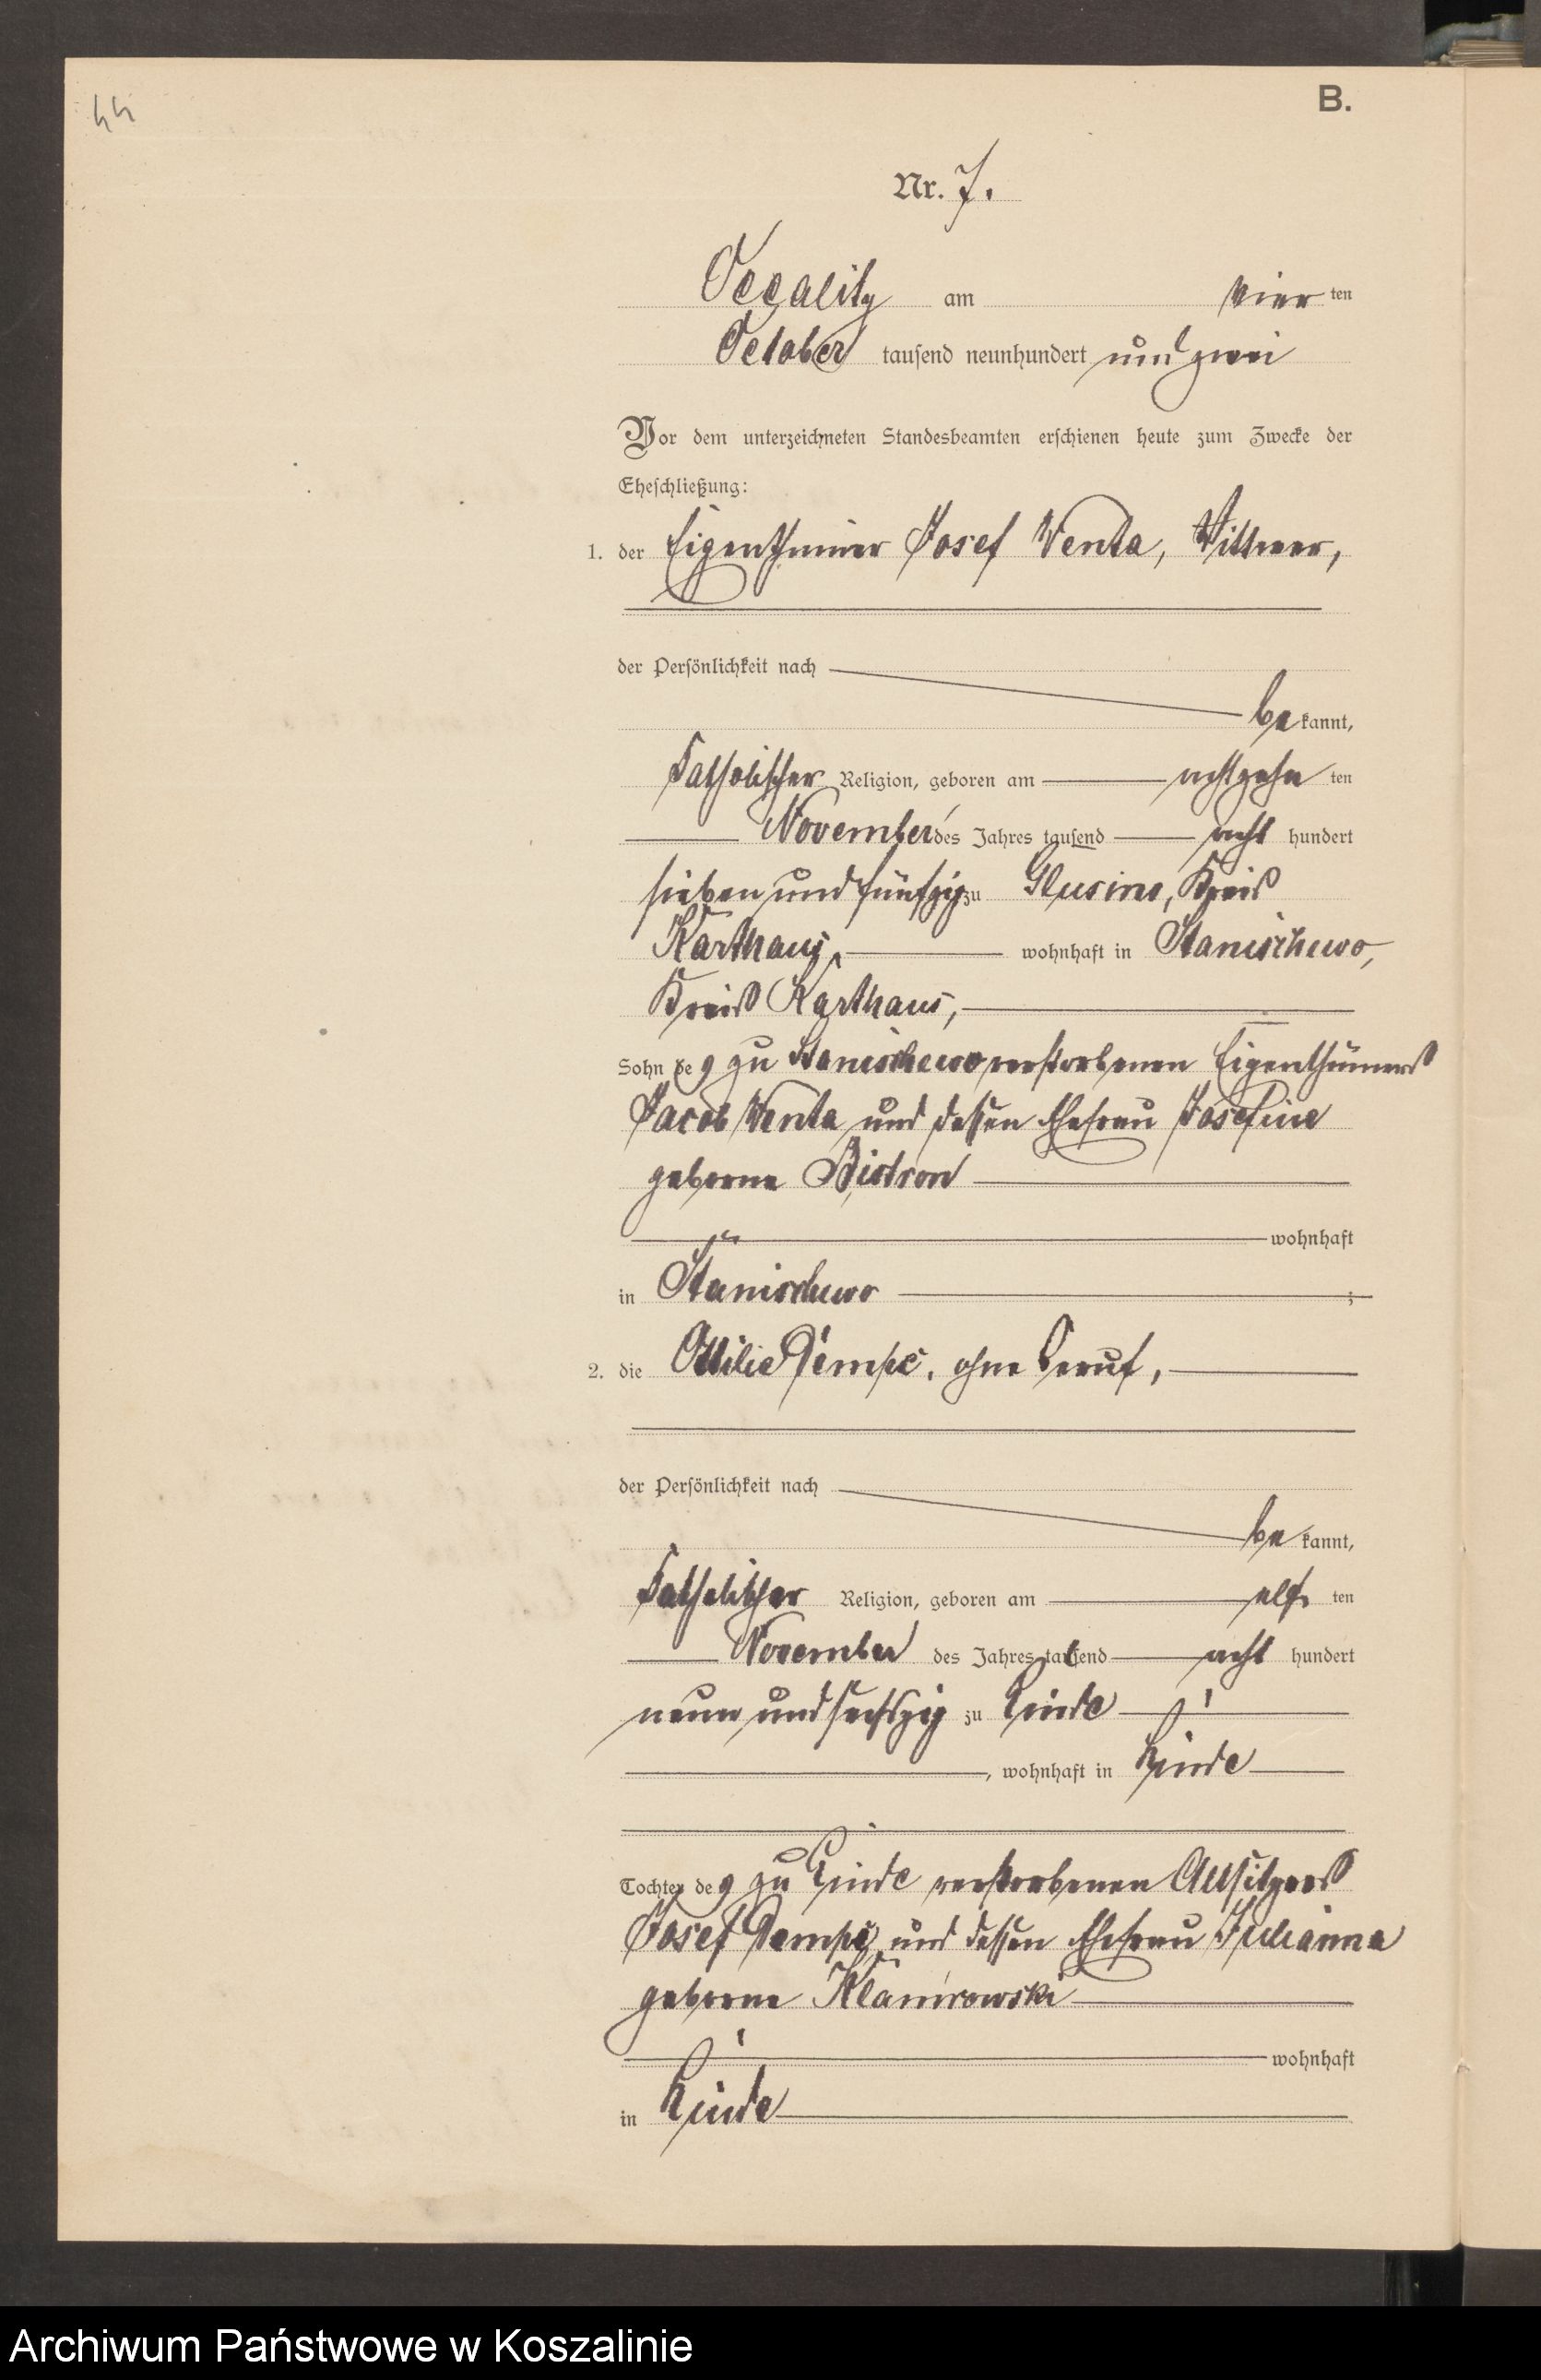 44
B.
Nr. 7.
Occalitz am vier ten
October tausend neunhundert und zwei
Vor dem unterzeichneten Standesbeamten erschienen heute zum Zwecke der
Eheschließung:
1. der Eigenthümer Josef Wenta, Wittwer,
der Persönlichkeit nach
be kannt,
katholischer Religion, geboren am achtzehn ten
November des Jahres tausend acht hundert
sieben und fünfzig zu Glusino, Kreis
Karthaus, wohnhaft in Stanischewo,
Kreis Karthaus,
Sohn des zu Stanischewo verstorbenen Eigenthümers
Jacob Wenta und dessen Ehefrau Josefine
geborne Bistron
wohnhaft
in Stanischewo ;
2. die Ottilie Dempc, ohne Beruf,
der Persönlichkeit nach
be kannt,
katholischer Religion, geboren am elf ten
November des Jahres tausend acht hundert
neun und sechszig zu Linde
, wohnhaft in Linde
Tochter des zu Linde verstorbenen Altsitzers
Josef Dempc und dessen Ehefrau Julianna
geborne
wohnhaft
in Linde
Archiwum Państwowe w Koszalinie